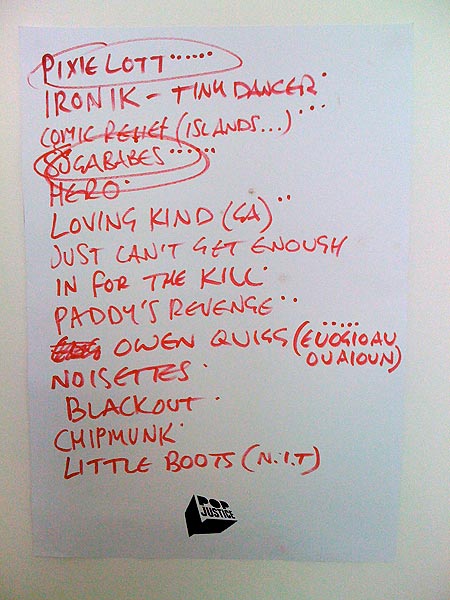 PIXIE LOTT ......
IRONIK - TINY DANCER .
COMIC RELIEF (ISLANDS...) ...
SUGABABES ......
HERO .
LOVING KIND (GA) ..
JUST CAN'T GET ENOUGH
IN FOR THE KILL .
PADDY'S REVENGE ..
OWEN QUIGG (EUOGIOAU .....
OUAIOUN)
NOISETTES .
BLACKOUT .
CHIPMUNK .
LITTLE BOOTS (N.I.T)
POP
JUSTICE